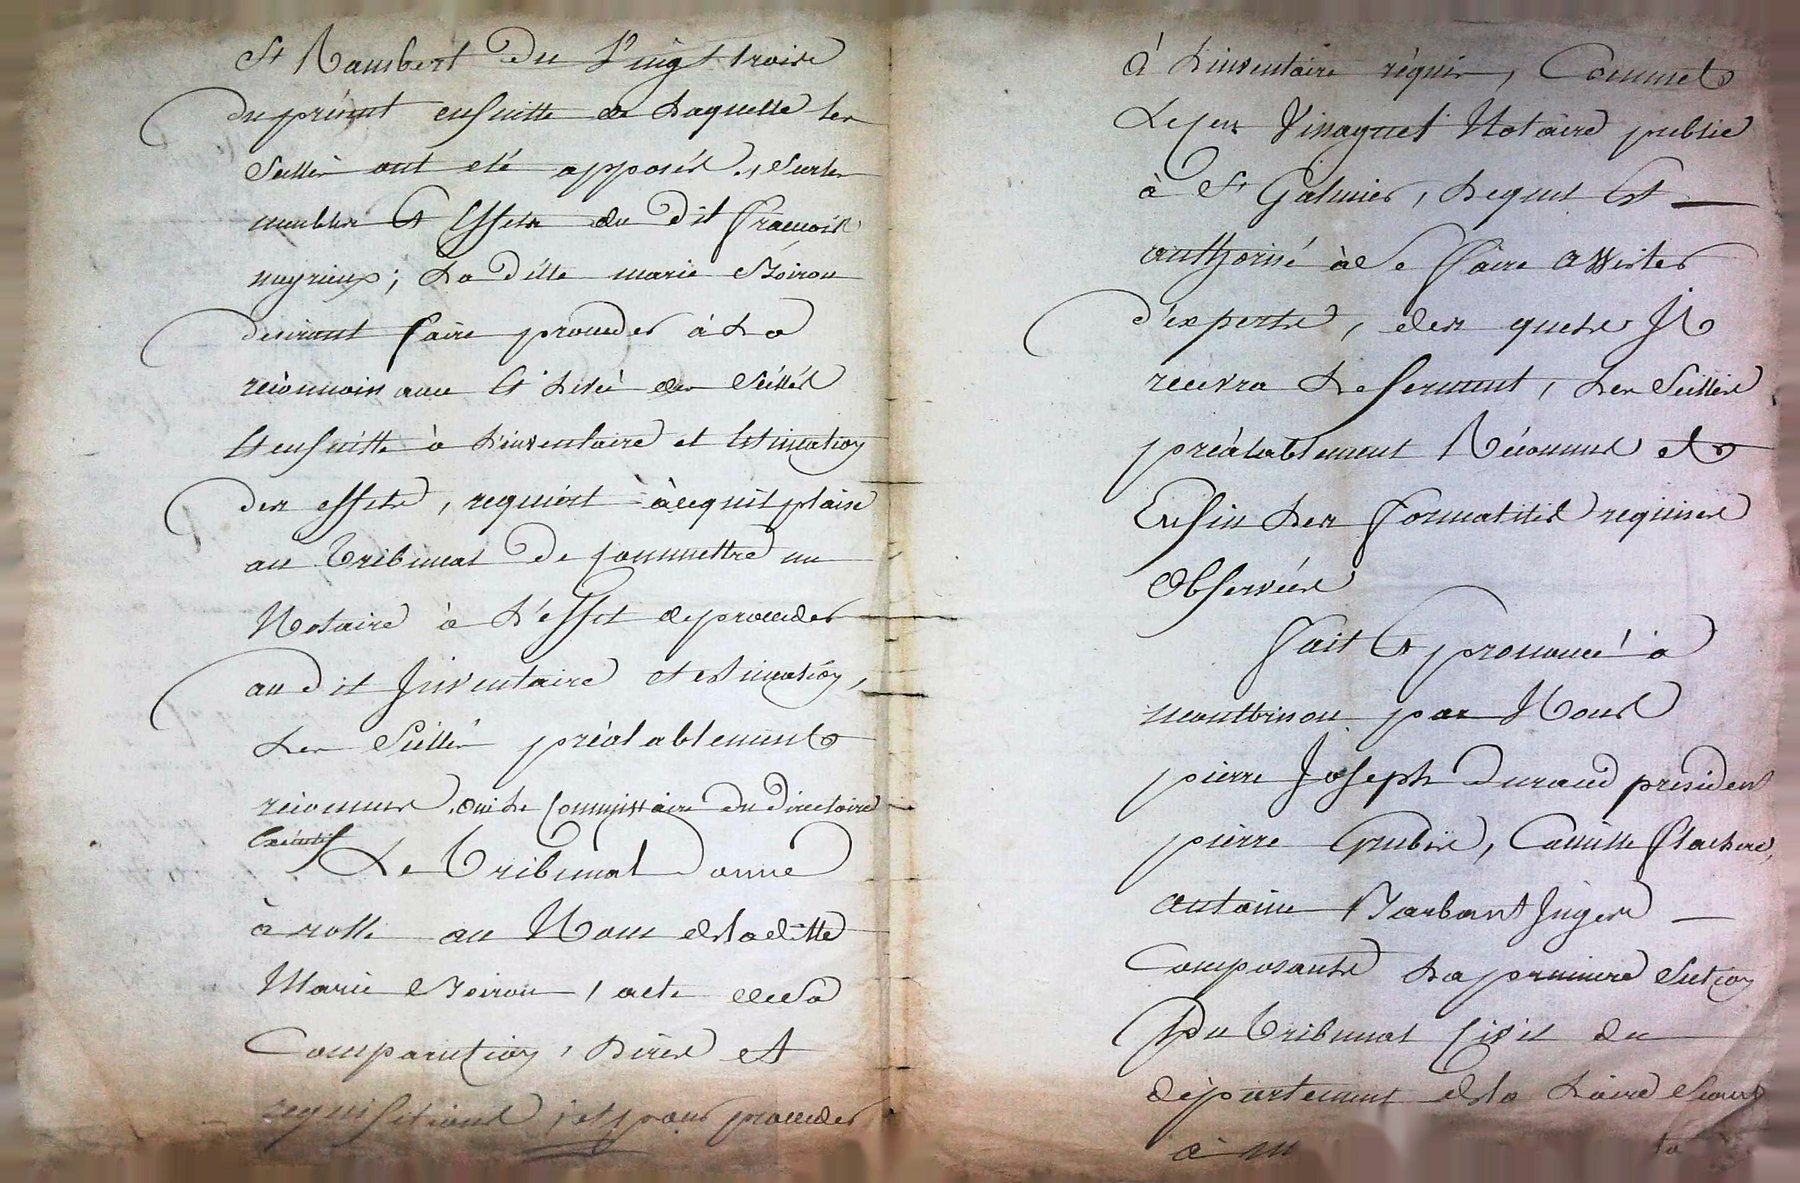 St Rambert du Vingt trois
du présent ensuitte de Laquelle les
Scellés ont été apposés, Sur les
meubles Et Effets du dit françois
neyrieux; La ditte marie Noiron
desirant faire proceder à La
reconnoissance Et Levée des Scéllés
Et ensuitte à L'inventaire et Estimation
des effets, requiert àcequil plaise
au Tribunal De Commettre un
Notaire à L'effet deproceder
au dit Inventaire et estimation,
Les Scéllés préalablement
reconnus. oui Le Commissaire du Directoire
Exécutif
Le Tribunal Donne
à rolle au Nom deladitte
Marie Noiron, acte desa
Comparution, Dires et
requisitions, et pour proceder
à Linventaire réquis, Commet
Le cen Vinagnet Notaire public
à St Galmier, Lequel Est
authorisé àse faire assister
d'experts, des quels Il
recevra Le Serment, Les Scéllés
préalablement Réconnus et
Enfin Les formalités requises
Observées
Fait Et prononcé à
montbrison par Nous
pierre Joseph Durand président
pierre Grubis, Camille flachere,
antoine Barbant Juges
Composants La premiere Section
Du Tribunal Civil du
département dela Loire Séant
à m